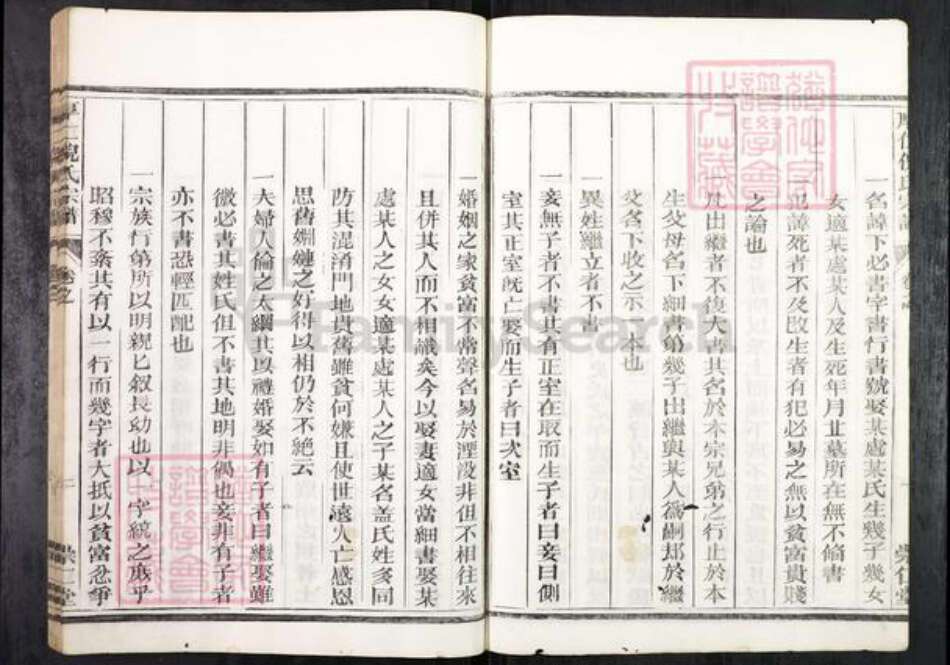 一名諱下必書字書行書號娶某處某氏生幾子幾女
女適某處某人及生死年月止墓所在無不備書
也諱死者不及改生者有犯必易之無以貧富貴賤
之論也
一凡出繼者不復大書其名於本宗兄弟之行止於本
生父母名下細書第幾子出繼與某人為嗣却於繼
父名下收之示一本也
一異姓繼立者不書
一妾無子者不書其有正室在取而生子者曰妾曰側
室其正室既亡娶而生子者曰次室
一婚姻之家貧富不常聲名易於湮没非但不相往來
且併其人而不相識矣今以娶妻適女當細書娶某
處某人之女女適某處某人之子某名盖氏姓多同
防其混淆門地貴舊雖貧何嫌且使世遠人亡感恩
思舊婣縺之好得以相仍於不絶云
一夫婦人倫之大綱其以禮婚娶如有子者曰繼娶雖
微必書其姓氏但不書其地明非偶也妾非有子者
亦不書恐輕匹配也
一宗族行第所以明親匕叙長幼也以一字統之庶乎
昭穆不紊共有以一行而幾字者大抵以貧富忿爭
倪氏宗譜
FamilySearch